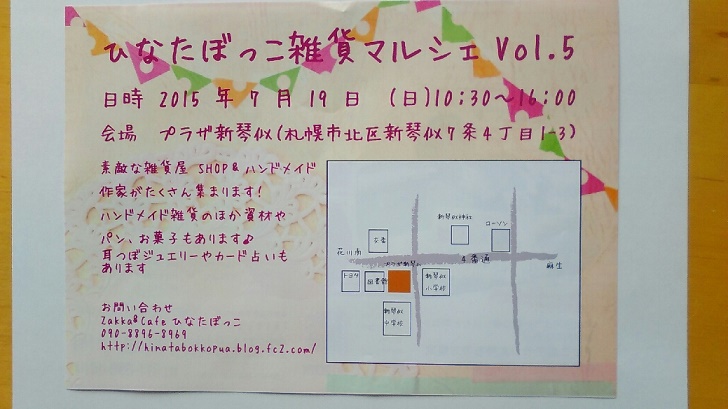 ひなたぼっこ雑貨マルシェ Vol.5
日時 2015 年 7 月 19 日 (日)10:30~16:00
会場 プラザ新琴似(札幌市北区新琴似7条4丁目1-3)
素敵な雑貨屋 SHOP&ハンドメイド
作家がたくさん集まります!
ハンドメイド雑貨のほか資材や
パン、お菓子もあります♪
耳つぼジュエリーやカード占いも
あります
お問い合わせ
Zakka&Cafe ひなたぼっこ
090-8896-8969
http://hinatabokkopua.blog.fc2.com/
新琴似神社
ローソン
交番
花川南
プラザ新琴似
4番通
麻生
トヨタ
図書館
新琴似
小学校
新琴似
中学校